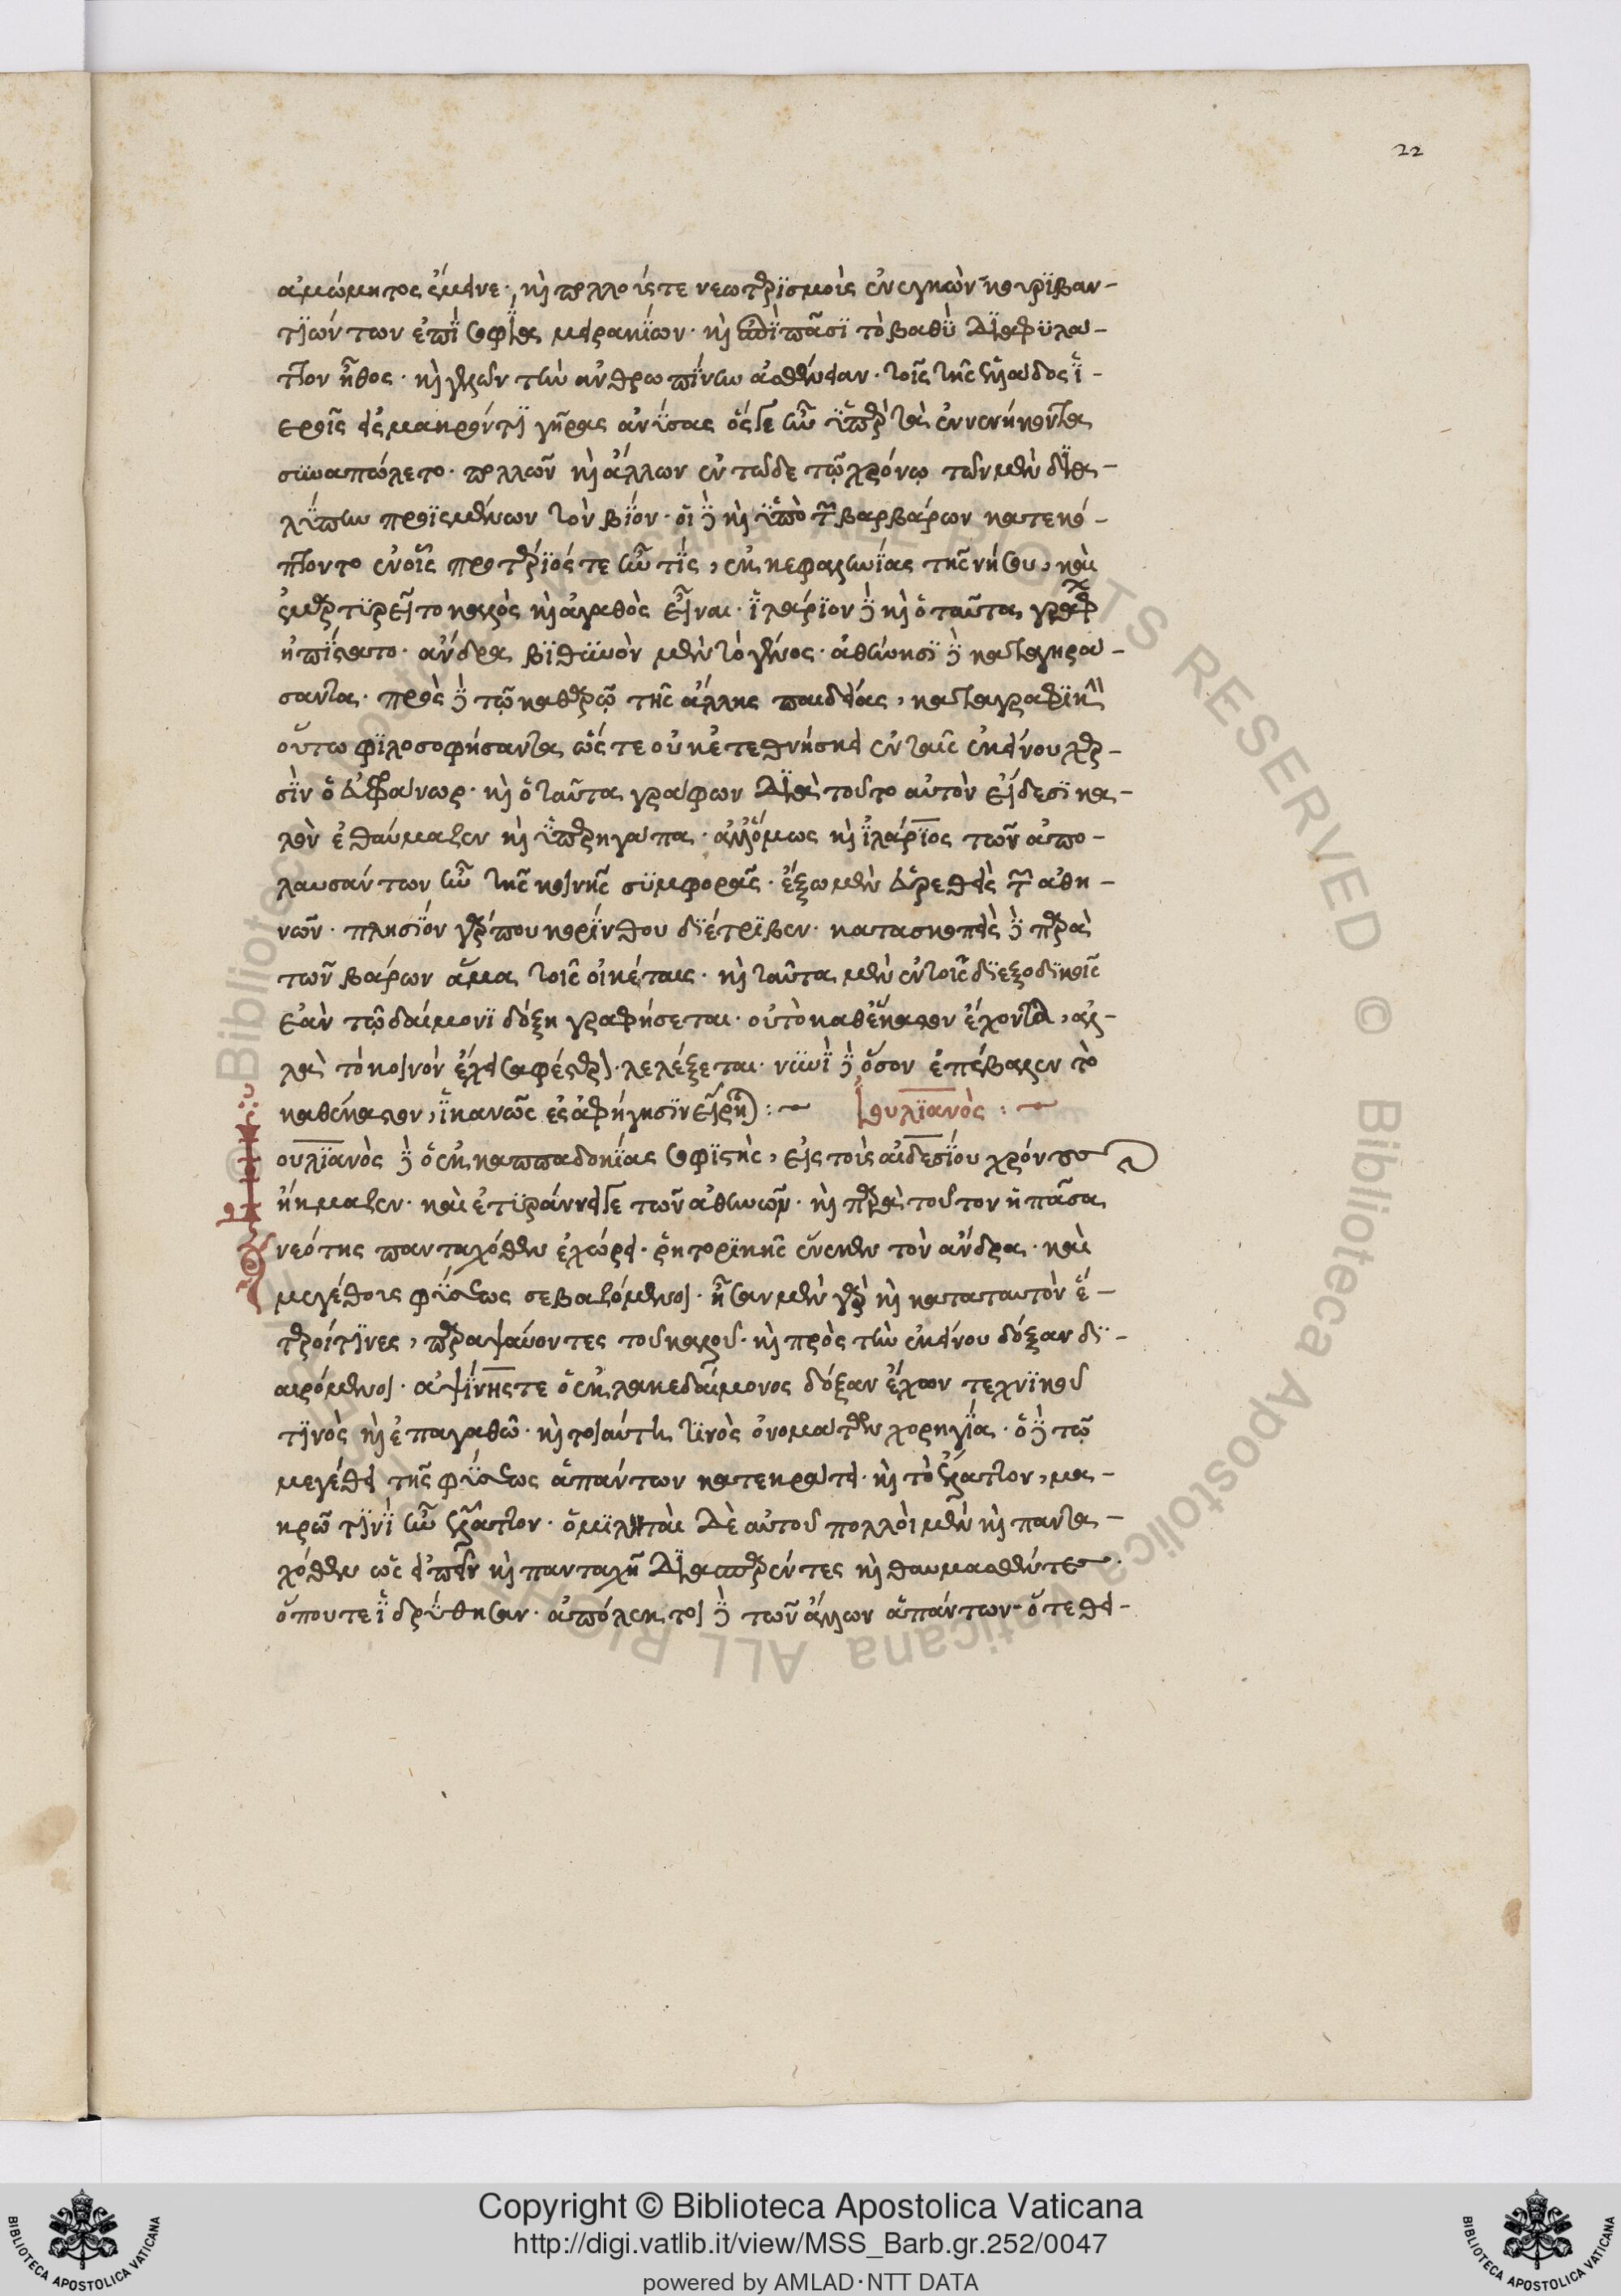 22
ἀμώμητος ἔμεινε· καὶ πολλοῖς τε νεωτερισμοῖς ἐνεγκὼν κορυβαν-
τιώντων ἐπὶ σοφίᾳ μειρακίων· καὶ ἐπὶ πᾶσι τὸ βαθὺ διαφυλάτ-
τον ἦθος· καὶ γελῶν τὴν ἀνθρωπίνην ἀσθένειαν· τοῖς τῆς ἑλλάδος ἱ-
εροῖς εἰς μακρόν τι γῆρας ἀνύσας ὅς γε ἦν ὑπὲρ τὰ ἐννενήκοντα
συναπώλετο· πολλῶν καὶ ἄλλων ἐν τῶδε τῷ χρόνῳ τῶν μὲν διὰ
λύπην προϊεμένων τὸν βίον· οἱ δὲ καὶ ὑπὸ τῶν βαρβάρων κατεκό-
πτοντο ἐν οἷς προτέριός τε ἦν τις, ἐκ κεφαλληνίας τῆς νήσου, καὶ
ἐμαρτυρεῖτο καλὸς καὶ ἀγαθὸς εἶναι· ἱλάριον δὲ καὶ ὁ ταῦτα γράφ
ἠπίστατο· ἄνδρα βιθυνὸν μὲν τὸ γένος· ἀθήνησι δὲ καταγηρά-
σαντα· πρὸς δὲ τῷ καθαρῷ τῆς ἄλλης παιδείας, κατὰ γραφικὴν
οὕτω φιλοσοφήσαντα ὥστε οὐκ ἐτεθνήκει ἐν ταῖς ἐκείνου χερ-
σὶν ὁ εὐφράνωρ· καὶ ὁ ταῦτα γράφων διὰ τοῦτο αὐτὸν εἴδεσι κα-
λὸν ἐθαύμαζεν καὶ ὑπερηγάπα· ἀλλ' ὅμως καὶ ἱλάριος τῶν ἀπο-
λαυσάντων ἦν τῆς κοινῆς συμφορᾶς· ἔξω μὲν εὑρεθεὶς τῶν ἀθη-
νῶν· πλησίον γάρ που κορίνθου διέτριβεν· κατασκοπεὶς δὲ παρὰ
τῶν βάρων ἅμα τοῖς οἰκέταις· καὶ ταῦτα μὲν ἐν τοῖς διεξοδικοῖς
ἐὰν τῷ δαίμονι δόξῃ γραφήσεται· οὐ τὸ καθ' ἕκαστον ἔχοντα, ἀλ-
λὰ τὸ κοινὸν ἐκεῖ σαφέστερον λελέξεται· νυνὶ δὲ ὅσον ἐπέβαλλεν τὸ
καθέκαστον, ἱκανῶς ἐς ἀφήγησιν εἴρηται: ἰουλιανός:
ουλιανὸς δὲ ὁ ἐκ καππαδοκίας σοφιστὴς, εἰς τοὺς αἰδεσίου χρόνους
ἤκμαζεν· καὶ ἐτυράννει γε τῶν ἀθηνῶν· καὶ παρὰ τοῦτον ἡ πᾶσα
νεότης πανταχόθεν ἐχώρει· ῥητορικῆς ἕνεκεν τὸν ἄνδρα· καὶ
μεγέθους φύσεως σεβαζόμενοι· ἦσαν μὲν γὰρ καὶ κατὰ ταυτὸν ἕ-
τεροί τινες, παραψαύοντες τοῦ καλοῦ· καὶ πρὸς τὴν ἐκείνου δόξαν δι-
αιρόμενοι· ἀψίνης τε ὁ ἐκ λακεδαίμονος δόξαν ἔχων τεχνικοῦ
τινὸς καὶ ἐπάγαθω· καὶ τοιαύτη τινὸς ὀνομάτων χορηγία· ὁ δὲ τῷ
μεγέθει τῆς φύσεως ἁπάντων κατεκράτει· καὶ τὸ ἔλαττον, μα-
κρῷ τινὶ ἦν ἔλαττον· ὁμιληταὶ δὲ αὐτοῦ πολλοὶ μὲν καὶ παντα-
χόθεν ὡς εἰπεῖν καὶ πανταχῆ διασπαρέντες καὶ θαυμασθέντες
ὅπου τε ἱδρύθησαν· ἀπόλεκτοι δὲ τῶν ἄλλων ἁπάντων· ὅ τε θει-
Copyright © Biblioteca Apostolica Vaticana
http://digi.vatlib.it/view/MSS_Barb.gr.252/0047
powered by AMLAD·NTT DATA